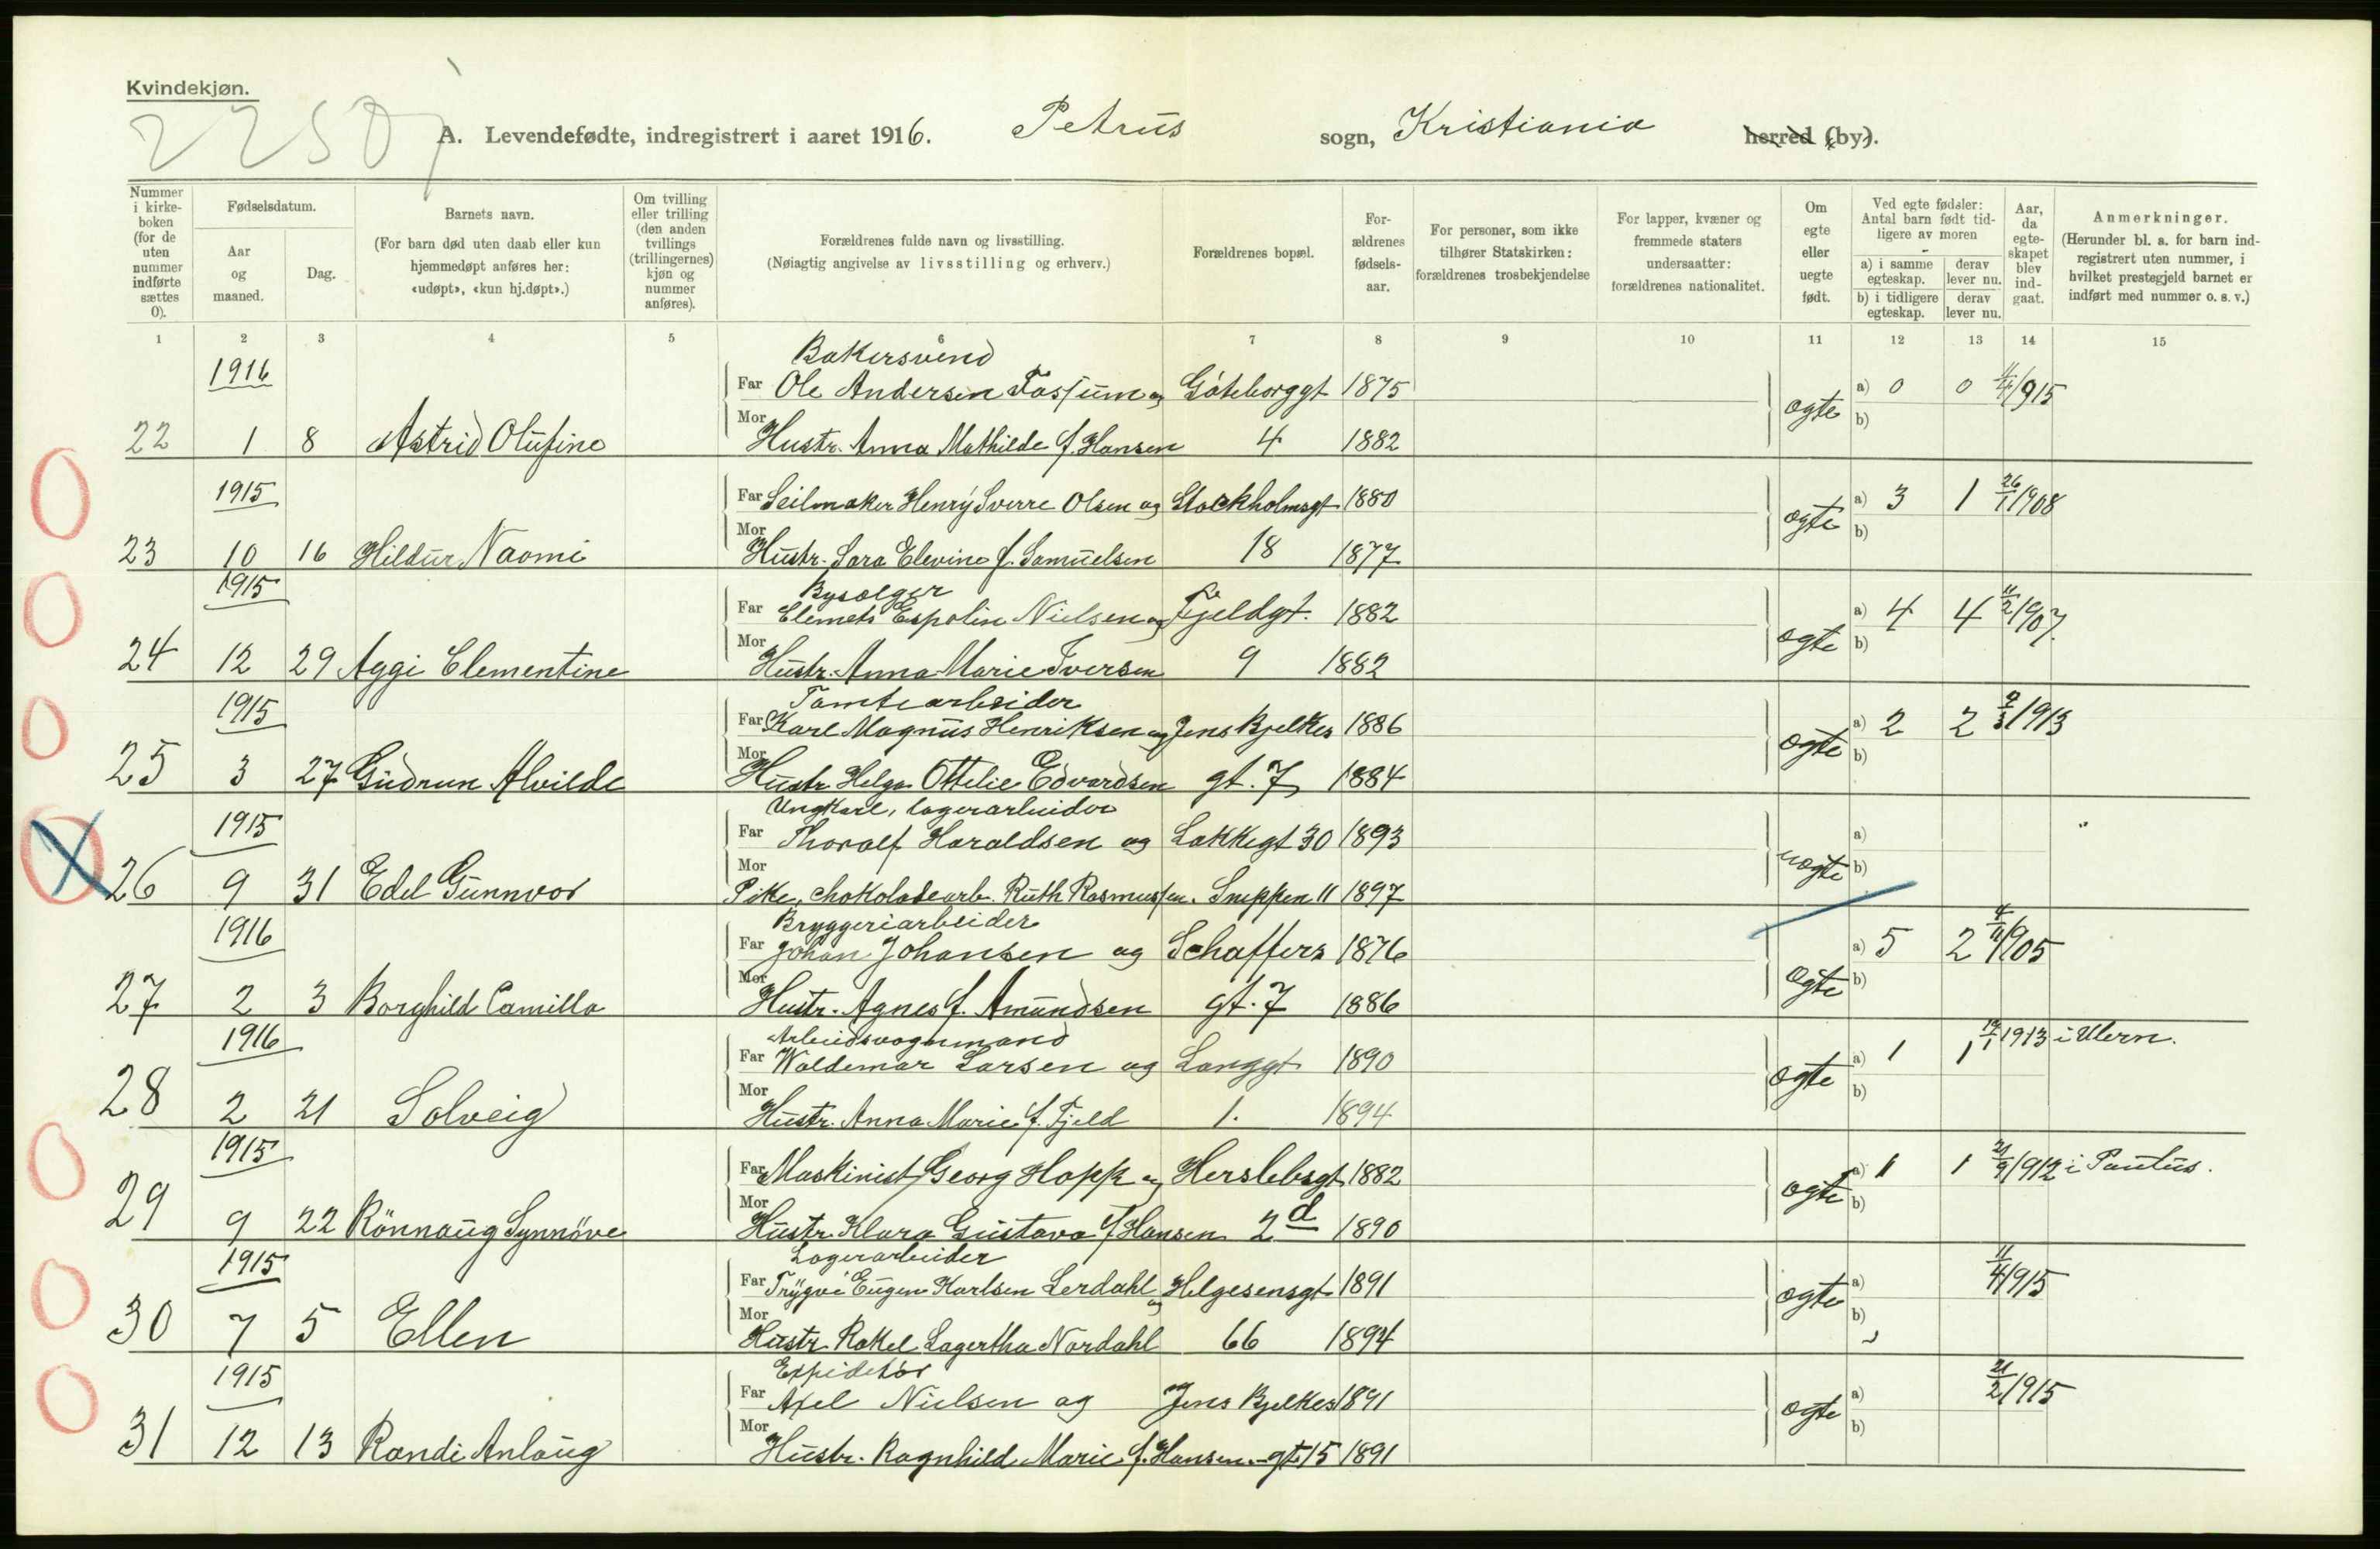 Kvindekjøn.
2250
A. Levendefødte, indregistrert i aaret 1916. Petrus sogn, Kristiania herred (by).
Nummer i kirke-boken (for de uten nummer indførte sættes 0).
Fødselsdatum.
Aar og maaned.
Dag.
Barnets navn.
(For barn død uten daab eller kun hjemmedøpt anføres her: «udøpt», «kun hj.døpt».)
Om tvilling eller trilling (den anden tvillings (trillingernes) kjøn og nummer anføres).
Forældrenes fulde navn og livsstilling.
(Nøiagtig angivelse av livsstilling og erhverv.)
Forældrenes bopæl.
For-ældrenes fødsels-aar.
For personer, som ikke tilhører Statskirken: forældrenes trosbekjendelse
For lapper, kvæner og fremmede staters undersaatter: forældrenes nationalitet.
Om egte eller uegte født.
Ved egte fødsler: Antal barn født tid-ligere av moren
a) i samme egteskap. derav lever nu.
b) i tidligere egteskap. derav lever nu.
Aar, da egte-skapet blev ind-gaat.
Anmerkninger.
(Herunder bl. a. for barn ind-registrert uten nummer, i hvilket prestegjeld barnet er indført med nummer o. s. v.)
1 2 3 4 5 6 7 8 9 10 11 12 13 14 15
1916 Bakersvend
Far Ole Andersen Fossum og Göteborggt 1875 a) 0 0 /915
ægte b)
Mor
22 1 8 Astrid Olufine Hustr. Anna Mathilde f. Hansen 4 1882
1915 Far Seilmaker Henry Sverre Olsen og Stockholmsgt 1880 a) 3 1 26/1 1908
ægte b)
Mor
23 10 16 Hildur Naomi Hustr. Sara Elevine f. Samuelsen 18 1877
1915 Bysælger
Far Clemets Espolin Nielsen og Fjeldgt. 1882 a) 4 4 11/2 1907
ægte b)
Mor
24 12 29 Aggi Clementine Hustr. Anna Marie Iversen 9 1882
1915 Tomtearbeider
Far Karl Magnus Henriksen og Jens Bjelkes 1886 a) 2 2 /3 1913
ægte b)
Mor
25 3 27 Gudrun Alvilde Hustr Helga Ottelie Edvardsen gt. 7 1884
1915 Ungkarl, lagerarbeider
Far Thoralf Haraldsen og Lakkegt 30 1893 a)
uægte b)
Mor
26 9 31 Edel Gunnvor Pike, chokoladearb. Ruth Rasmussen. Sneppen 11 1897
1916 Bryggeriarbeider
Far Johan Johansen og Schaffers 1876 a) 5 2 4/11 1905
ægte b)
Mor
27 2 3 Borghild Camilla Hustr. Agnes f. Amundsen gt. 7 1886
1916 Arbeidsvognmand
Far Waldemar Larsen og Langgt 1890 a) 1 1 /1 1913 i Ulern.
ægte b)
Mor
28 2 21 Solveig Hustr. Anna Marie f. Fjeld 1. 1894
1915 Far Maskinist Georg Hopp og Herslebsgt 1882 a) 1 1 21/9 1912 i Paulus.
ægte b)
Mor
29 9 22 Rönnaug Synnöve Hustr. Klara Gustava f Hansen 2d 1890
1915 Lagerarbeider
Far Trygve Eugen Karlsen Lerdahl og Helgesensgt 1891 a) 11/4 1915
ægte b)
Mor
30 7 5 Ellen Hustr Rakel Lagertha Nordahl 66 1894
1915 Expeditör
Far Axel Nielsen og Jens Bjelkes 1891 a) 21/2 1915
ægte b)
Mor
31 12 13 Randi Anlaug Hustr. Ragnhild Marie f. Hansen. gt 15 1891